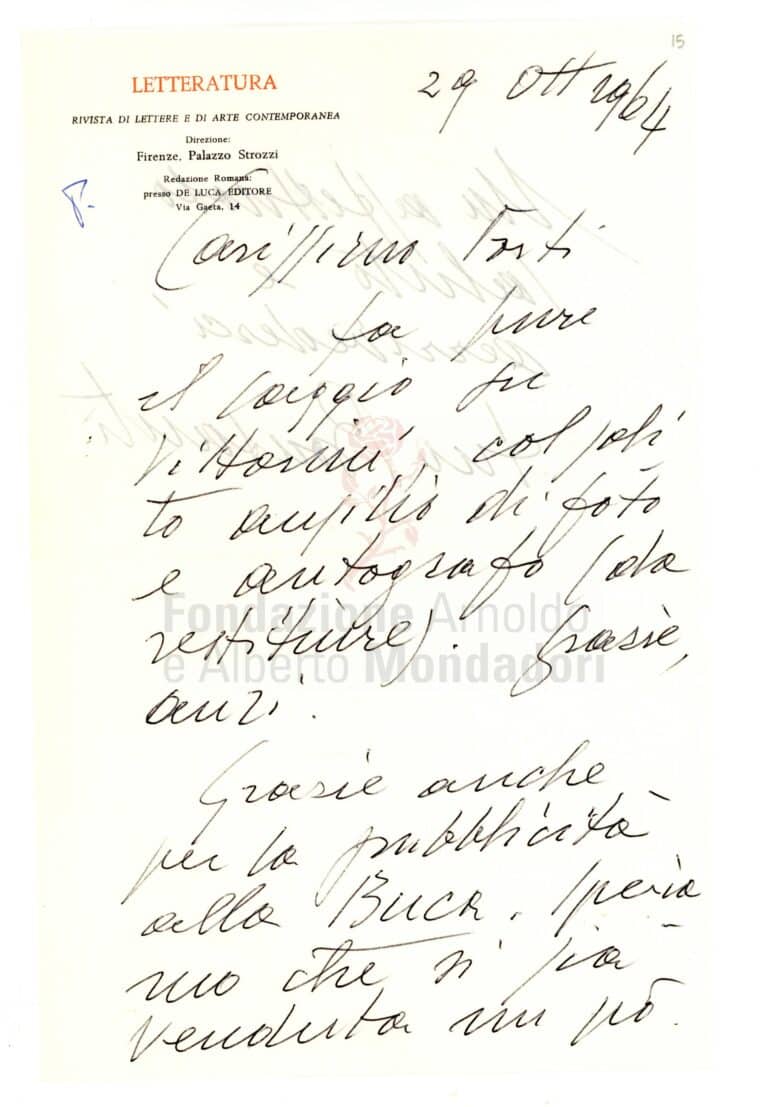 15
LETTERATURA
RIVISTA DI LETTERE E DI ARTE CONTEMPORANEA
Direzione:
Firenze, Palazzo Strozzi
Redazione Romana:
presso DE LUCA EDITORE
Via Gaeta, 14
29 Ott 1964
Carissimo Forti
fa pure
il saggio su
Vittorini, col soli
to ausilio di foto
e autografo (da
restituire). Grazie,
anzi.
Grazie anche
per la pubblicità
alla Buca. Speria
mo che si sia
venduta un pò.
Fondazione Arnoldo
e Alberto Mondadori